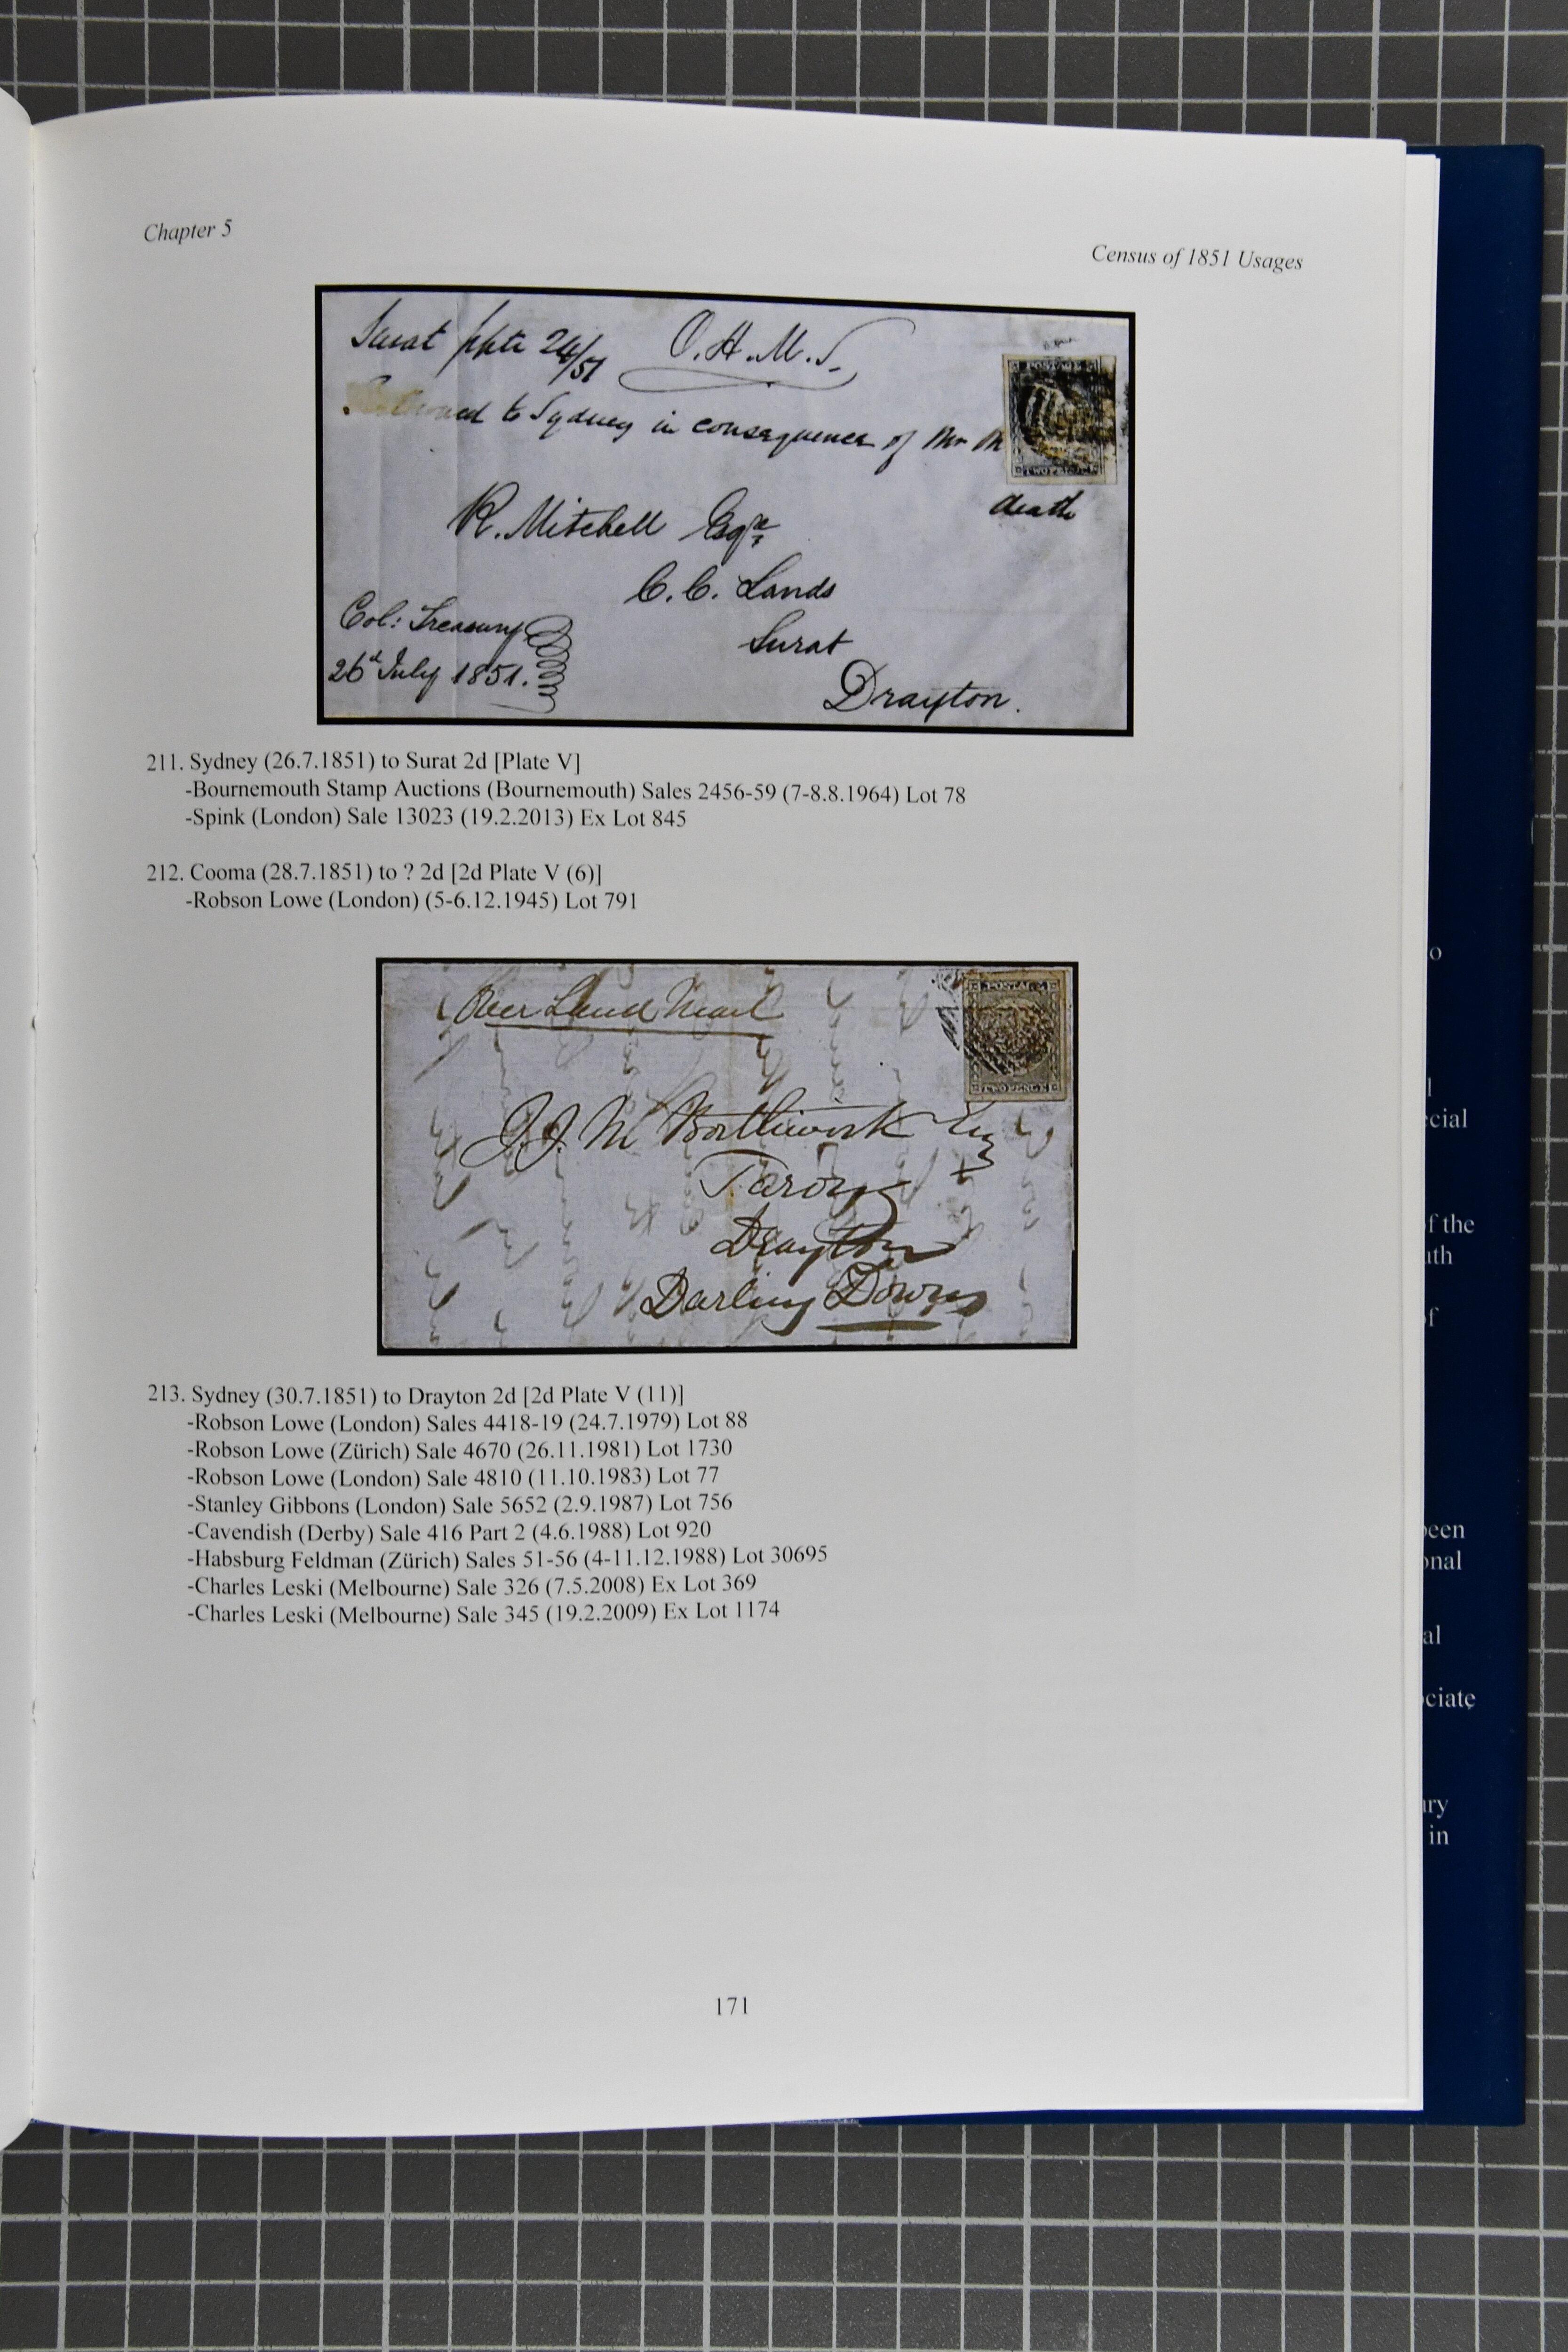 Chapter 5
Census of 1851 Usages
Surat 24/51
O.H.M.S.
to Sydney in consequence of Mr M
death
POSTAGE
TWO PENCE
R. Mitchell Esqre
C.C. Lands
Surat
Drayton.
Col: Treasury
26th July 1851.
211. Sydney (26.7.1851) to Surat 2d [Plate V]
-Bournemouth Stamp Auctions (Bournemouth) Sales 2456-59 (7-8.8.1964) Lot 78
-Spink (London) Sale 13023 (19.2.2013) Ex Lot 845
212. Cooma (28.7.1851) to ? 2d [2d Plate V (6)]
-Robson Lowe (London) (5-6.12.1945) Lot 791
Over Land Mail
POSTAGE
TWO PENCE
J.J. M Borthwick Esq
Taroom
Drayton
Darling Downs
213. Sydney (30.7.1851) to Drayton 2d [2d Plate V (11)]
-Robson Lowe (London) Sales 4418-19 (24.7.1979) Lot 88
-Robson Lowe (Zürich) Sale 4670 (26.11.1981) Lot 1730
-Robson Lowe (London) Sale 4810 (11.10.1983) Lot 77
-Stanley Gibbons (London) Sale 5652 (2.9.1987) Lot 756
-Cavendish (Derby) Sale 416 Part 2 (4.6.1988) Lot 920
-Habsburg Feldman (Zürich) Sales 51-56 (4-11.12.1988) Lot 30695
-Charles Leski (Melbourne) Sale 326 (7.5.2008) Ex Lot 369
-Charles Leski (Melbourne) Sale 345 (19.2.2009) Ex Lot 1174
171
f the
in